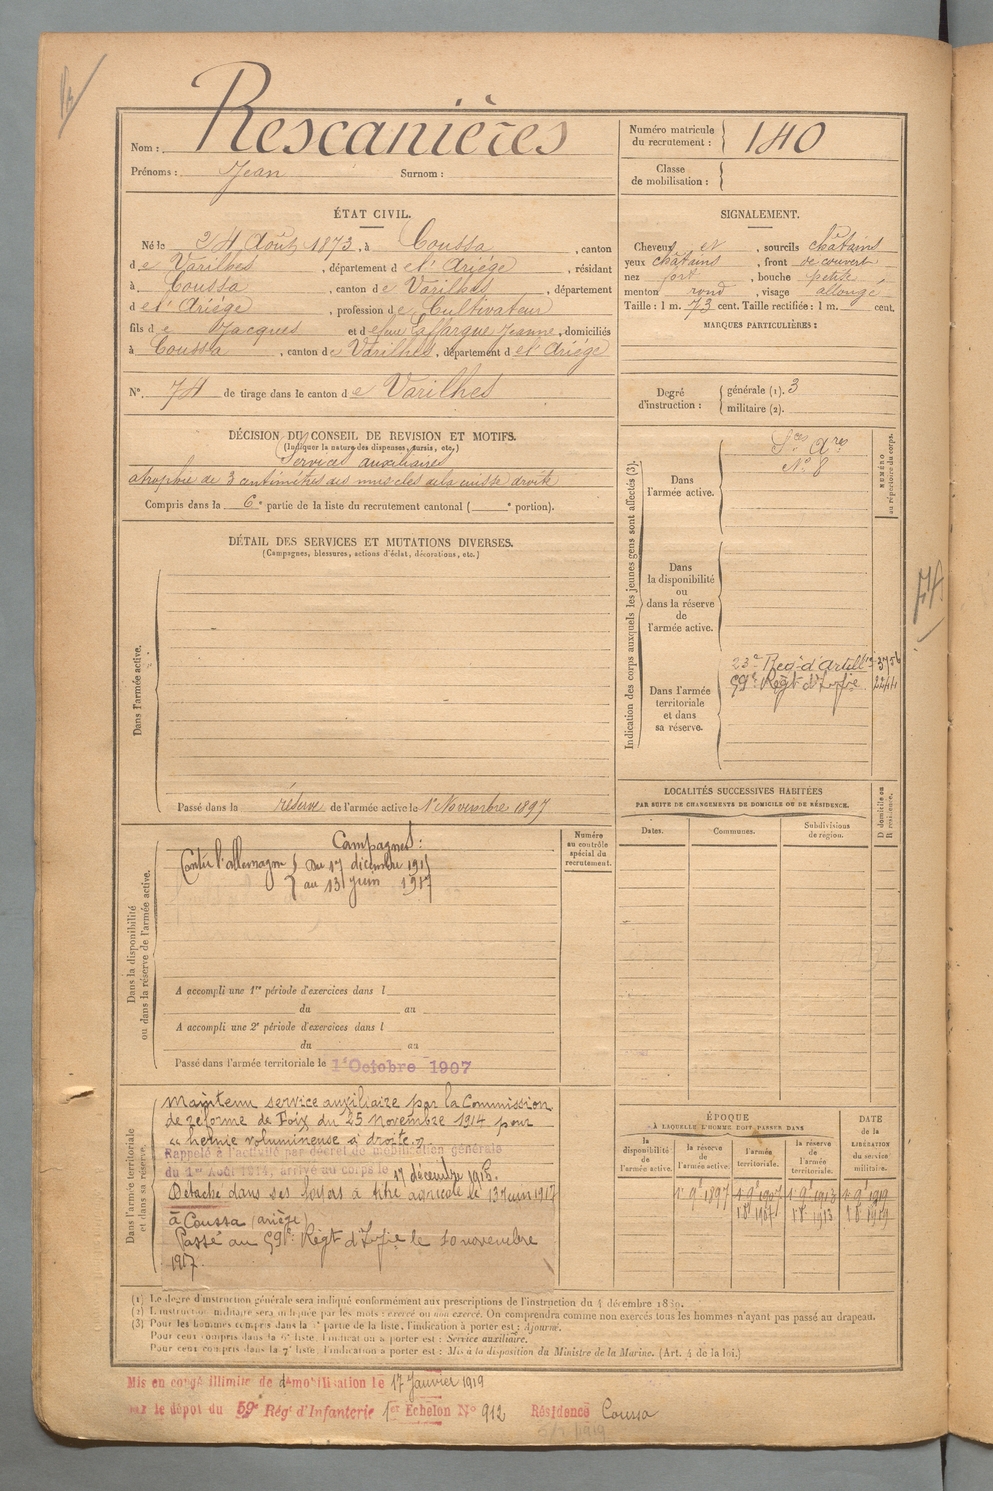 Nom : Rescanières
Prénoms : Jean Surnom :
Numéro matricule du recrutement : 140
Classe de mobilisation :
ÉTAT CIVIL.
Né le 24 Août 1873, à Coussa, canton
de Varilhes, département de l'Ariége, résidant
à Coussa, canton de Varilhes, département
de l'Ariége, profession de Cultivateur
fils de Jacques et de feue Laffargue Jeanne, domiciliés
à Coussa, canton de Varilhes, département de l'Ariége
N° 74 de tirage dans le canton de Varilhes
SIGNALEMENT.
Cheveux et, sourcils châtains
yeux châtains, front découvert
nez fort, bouche petite
menton rond, visage allongé
Taille : 1 m. 73 cent. Taille rectifiée : 1 m. cent.
MARQUES PARTICULIÈRES :
Degré d'instruction : générale (1). 3
militaire (2).
DÉCISION DU CONSEIL DE REVISION ET MOTIFS.
(Indiquer la nature des dispenses, sursis, etc.)
Services auxiliaires
atrophie de 3 centimètres des muscles de la cuisse droite
Compris dans la 6e partie de la liste du recrutement cantonal ( e portion).
DÉTAIL DES SERVICES ET MUTATIONS DIVERSES.
(Campagnes, blessures, actions d'éclat, décorations, etc.)
Dans l'armée active.
Passé dans la réserve de l'armée active le 1er Novembre 1897
Indication des corps auxquels les jeunes gens sont affectés (3).
NUMÉRO au répertoire du corps.
Dans l'armée active.
Sces Ares
N° 8
Dans la disponibilité ou dans la réserve de l'armée active.
Dans l'armée territoriale et dans sa réserve.
23e Reg d'Artillie 3756
59e Régt d'Infie 2244
LOCALITÉS SUCCESSIVES HABITÉES
PAR SUITE DE CHANGEMENTS DE DOMICILE OU DE RÉSIDENCE.
D domicile ou R résidence.
Dates. Communes. Subdivisions de région.
Dans la disponibilité ou dans la réserve de l'armée active.
Numéro au contrôle spécial du recrutement.
Campagnes :
Contre l'allemagne { Du 17 décembre 1915
au 13 juin 1917
A accompli une 1re période d'exercices dans l
du au
A accompli une 2e période d'exercices dans l
du au
Passé dans l'armée territoriale le 1er Octobre 1907
Dans l'armée territoriale et dans sa réserve.
Maintenu service auxiliaire par la Commission
de réforme de Foix du 25 Novembre 1914 pour
"hernie volumineuse à droite"
Rappelé à l'activité par décret de mobilisation générale
du 1er Août 1914, arrivé au corps le 17 décembre 1915.
Détaché dans ses foyers à titre agricole le 13 juin 1917
à Coussa (ariège)
Passé au 59e Régt d'Infie le 10 novembre
1917.
ÉPOQUE
À LAQUELLE L'HOMME DOIT PASSER DANS
la disponibilité de l'armée active.
la réserve de l'armée active.
l'armée territoriale.
la réserve de l'armée territoriale.
DATE de la LIBÉRATION du service militaire.
1er 9e 1897 1er 9e 1907 1er 9e 1913 1er 9e 1919
1er 8e 1907 1er 8e 1913 1er 8e 1919
(1) Le degré d'instruction générale sera indiqué conformément aux prescriptions de l'instruction du 4 décembre 1889.
(2) L'instruction militaire sera indiquée par les mots : exercé ou non exercé. On comprendra comme non exercés tous les hommes n'ayant pas passé au drapeau.
(3) Pour les hommes compris dans la 5e partie de la liste, l'indication à porter est : Ajourné.
Pour ceux compris dans la 6e liste, l'indication à porter est : Service auxiliaire.
Pour ceux compris dans la 7e liste, l'indication à porter est : Mis à la disposition du Ministre de la Marine. (Art. 4 de la loi.)
Mis en congé illimité de démobilisation le 17 Janvier 1919
par le dépôt du 59e Rég' d'Infanterie 1er Echelon N° 912 Résidence Coussa